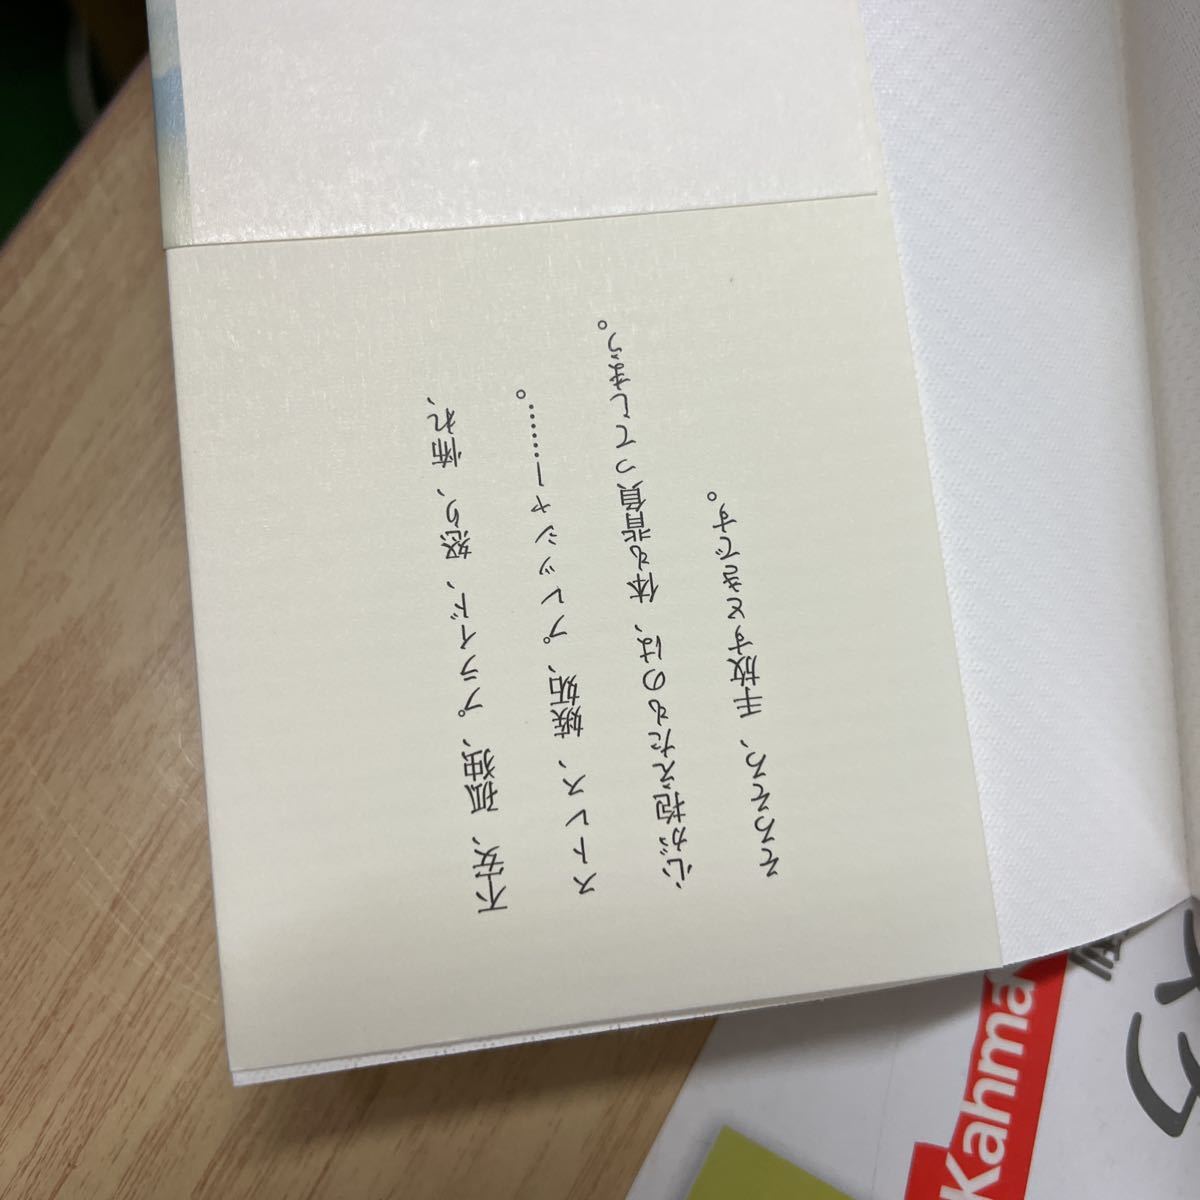 不安、孤独、プライド、怒り、怖れ、
ストレス、嫉妬、プレッシャー……。
心が抱えたものは、体も背負ってしまう。
そろそろ、手放すときです。
Kahma